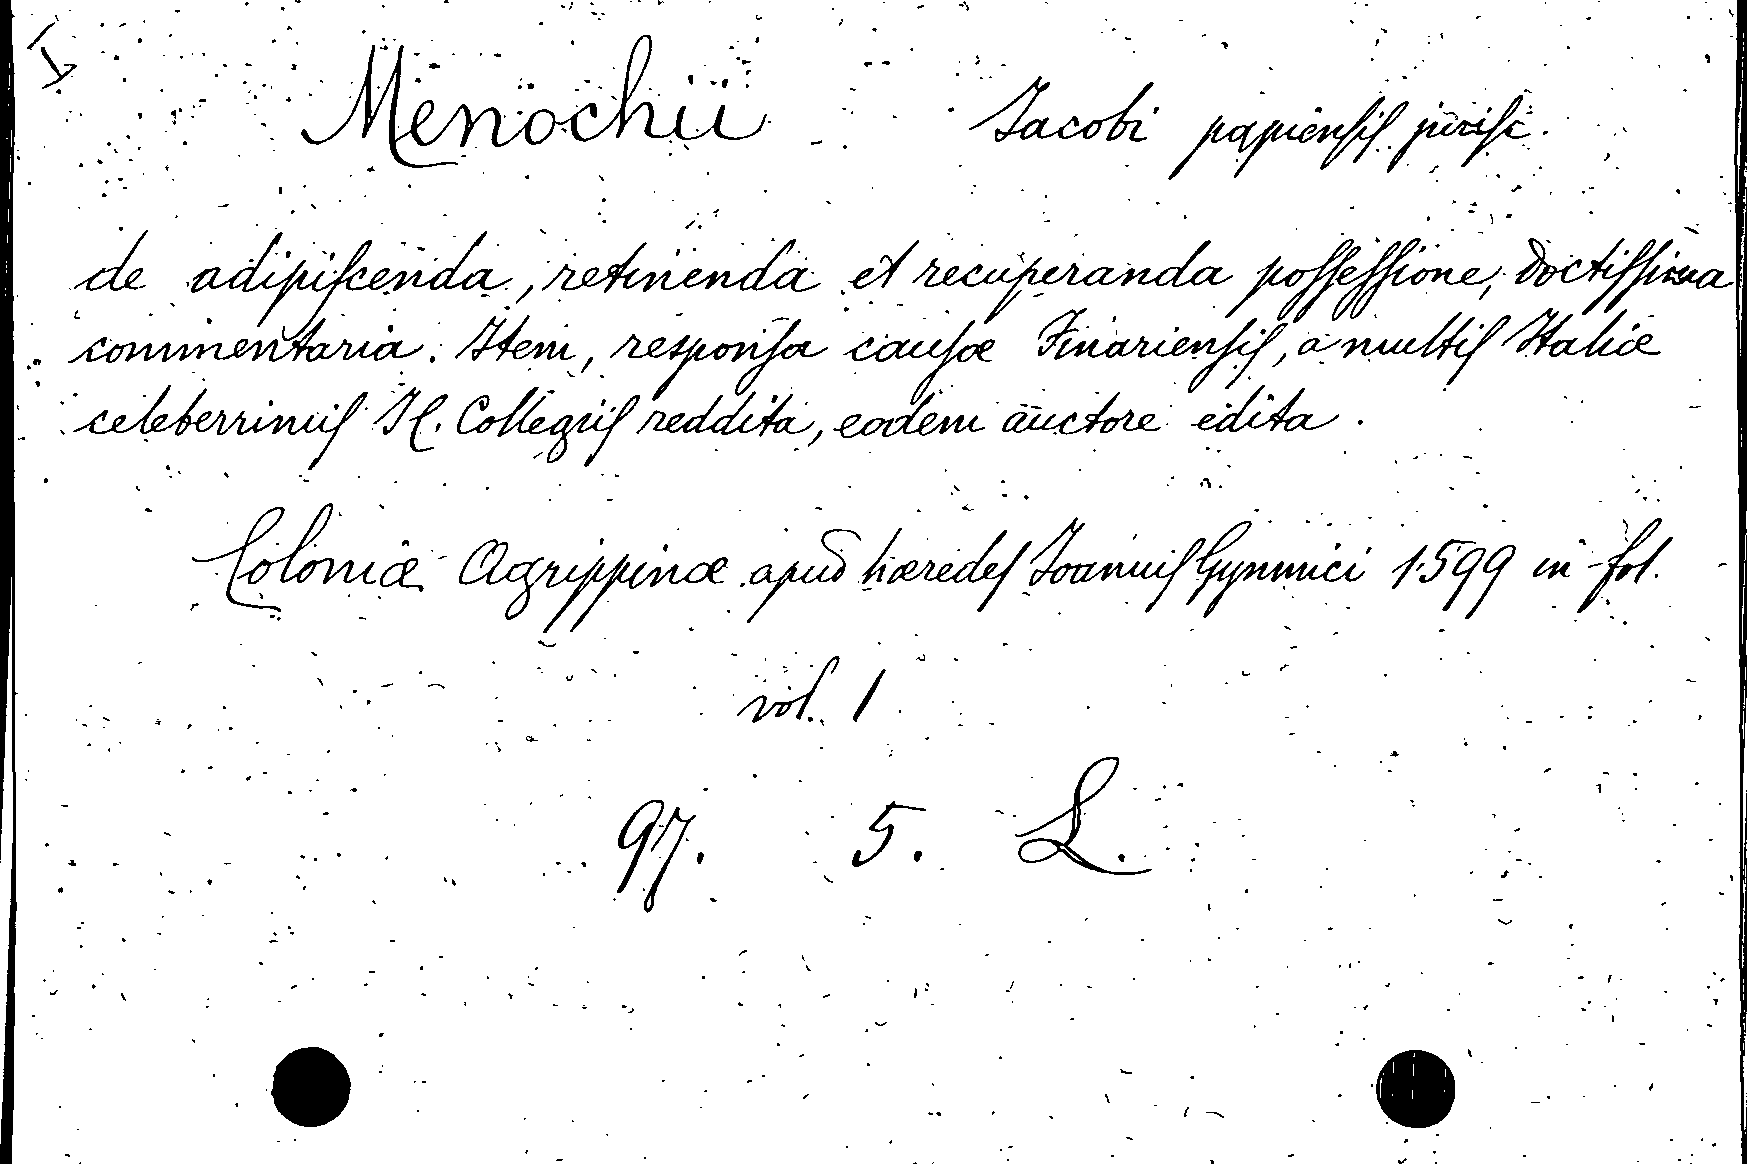 I
Menochii Jacobi papiensis jurisc.
de adipiscenda, retinenda et recuperanda possessione, doctissima
commentaria. Item, responsa causæ Finariensis, a multis Italiæ
celeberrimis Collegiis reddita, eodem auctore edita.
Coloniæ Agrippinæ apud hæredes Joannis Gymnici 1599 in fol.
vol. 1
97. 5. L.